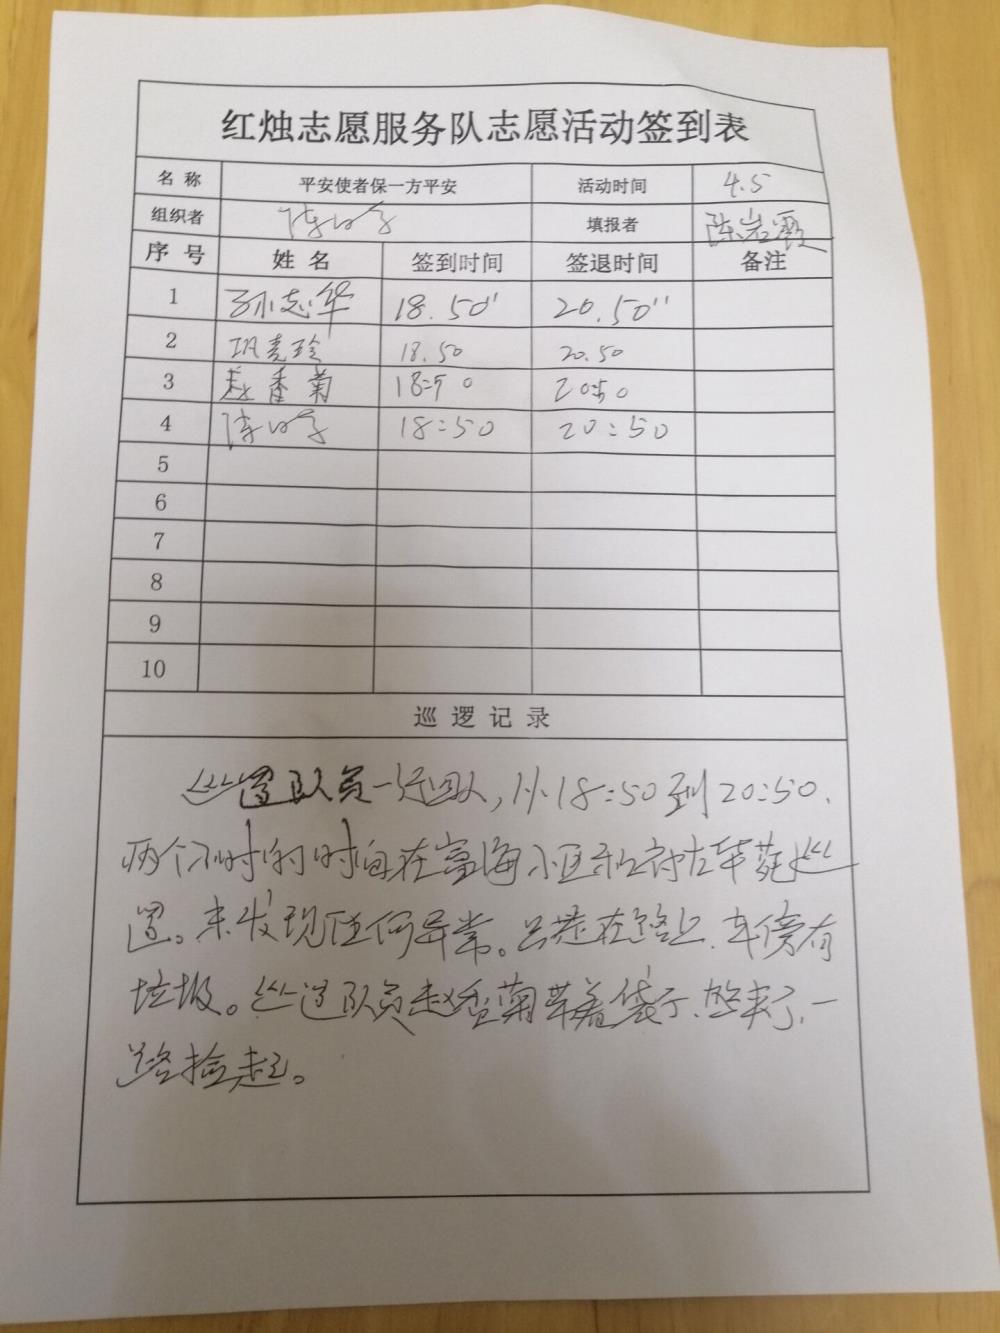 红烛志愿服务队志愿活动签到表
名称 平安使者保一方平安 活动时间 4.5
组织者 填报者 陈岩霞
序号 姓名 签到时间 签退时间 备注
1 孙志华 18.50' 20.50''
2 巩秀珍 18.50 20.50
3 赵香菊 18:50 20:50
4 18:50 20:50
5
6
7
8
9
10
巡逻记录
巡逻队员一行四人,从18:50到20:50.
两个小时的时间在富海小区和 华苑巡
逻。未发现任何异常。只是在路上、车傍有
垃圾。巡逻队员赵香菊带着袋子、 来了,一
路捡起。